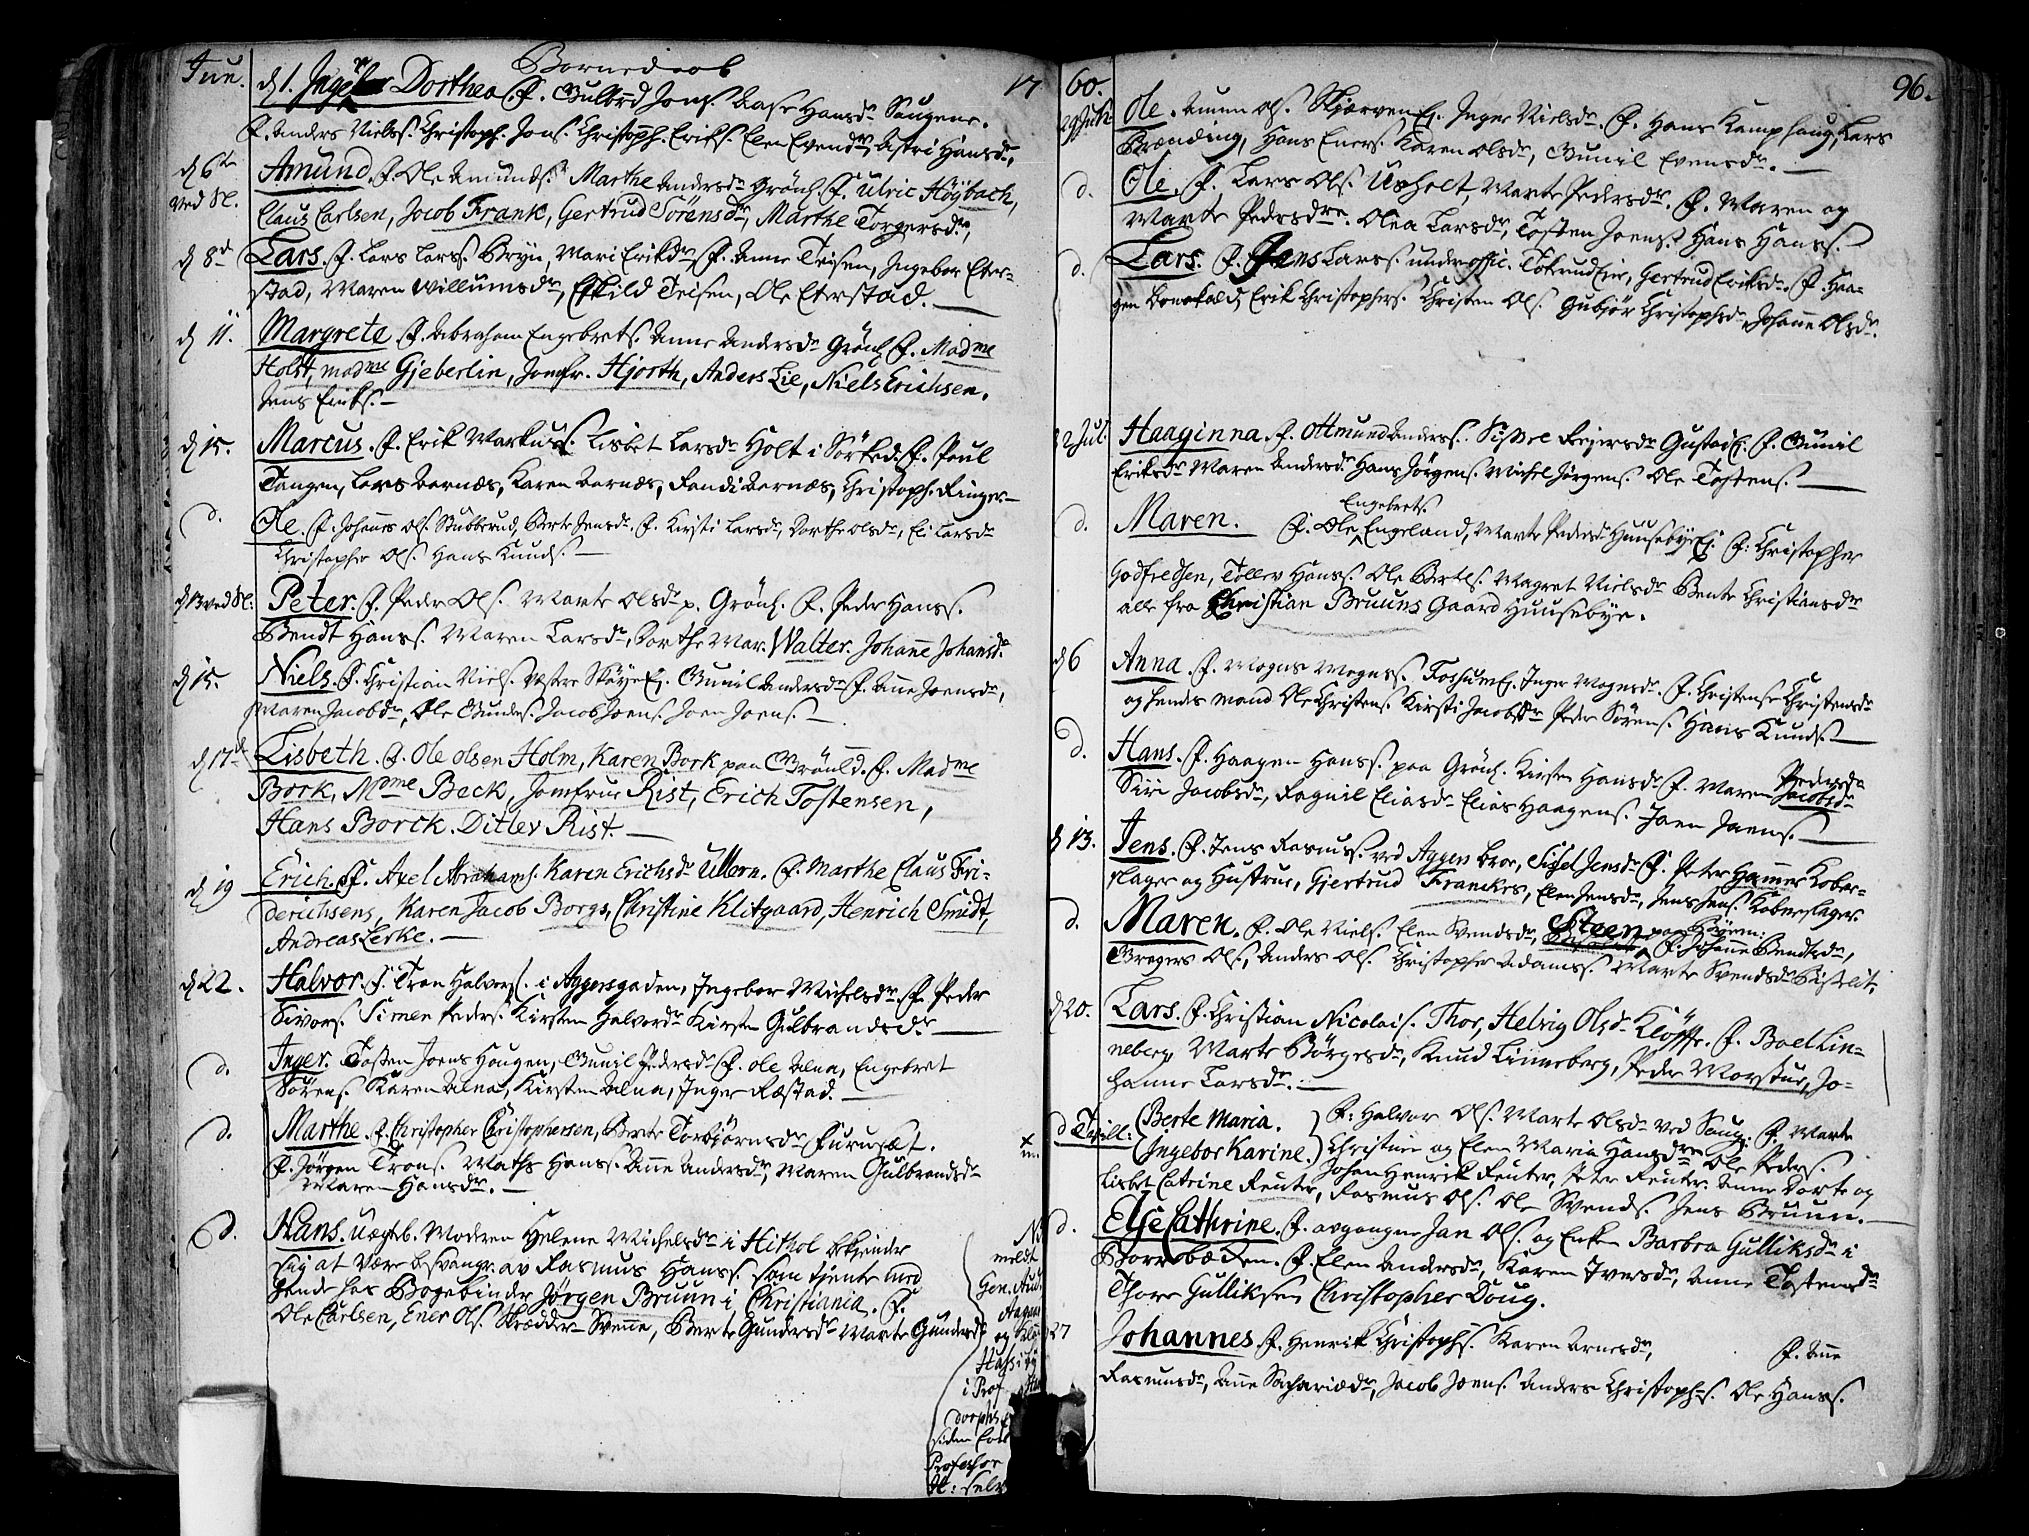 Jun.
Borned__b
17
d 1. Inge__ Dorthea. F. Gulbrd Jons. Aase Hansdr Saugene.
F. Anders Nielss. Christoph. Jons. Christoph. Eriks. Elen Evendr, Astri Hansdr,
d 6te
ved Sl.
Amund. F. Ole Amunds. Marthe Andersdr Grönl. F. Ulric Höybach,
Claus Carlsen, Jacob Frank, Gertrud Sörensdr, Marthe Torgersdr,
d 8d
Lars. F. Lars Larss. Bryn, Mari Erikdr, F. Anne Teisen, Ingebor Eter-
stad, Maren Willumsdr, Eskild Teisen, Ole Eterstad.
d 11.
Margrete F. Abraham Engebrets. Anne Andersdr Grönl F. Madme
Holst, madme Gjeberlin, Jomfr. Hjorth, Anders Lie, Niels Erichsen.
Jens Eriks.
d 15.
Marcus. F. Erik Markuss. Lisbet Larsdr Holt i Sörked. F. Poul
Tangen, Lars Bernæs, Karen Bernæs, Randi Bernæs, Christoph. Ringer
d.
Ole. F. Johannes Ols. Stubberud, Berte Jensdr. F. Kirsti Larsdr, Dorthe Olsdr, Eli Larsdr
Christopher Ols. Hans Knuds.
d 13 ved Sl:
Peter. F. Peder Ols. Marte Olsdr p. Grönl. F. Peder Hanss.
Bendt Hanss. Maren Larsdr, Dorthe Mar. Walter. Johane Johansdr.
d 15.
Niels. F. Christian Niels. Vestre Skøye E. Gunil Andersdr F. Anne Joensdr,
Maren Jacobdr, Ole Gunders. Jacob Joens. Joen Joens.
d 17de
Lisbeth. F. Ole Olsen Holm, Karen Bork paa Grönld. F. Madme
Bork, Mdme Back, Jomfrue Rist, Erich Tostensen,
Hans Borck. Ditlev Rist.
d 19
Erich. F. Axel Abrahams. Karen Erichsdr Ullern. F. Marthe Claus Fri-
derichsens, Karen Jacob Borgs, Christine Klitgaard, Henrich Smidt,
Andreas Lerke.
d 22.
Halvor. F. Tron Halvors. i Aggersgaden, Ingebor Michelsdr. F. Peder
Sivers. Simen Peders. Kirsten Halvordr Kirsten Gulbrandsdr.
d.
Inger. Tosten Joens Haugen, Gunil Pedersdr F. Ole Alna, Engebret
Sörens. Karen Alna, Kirsten Alna, Inger Ræstad.
d.
Marthe. F. Christopher Christophersen, Berte Torbjörnsdr, Furuset.
F. Jörgen Trons. Mathis Hanss. Anne Andersdr, Maren Gulbrandsdr
Maren Hansdr.
d.
Hans. Uægtb. Moderen Helene Michelsdr i Hithol bekjender
sig at være besvangr. av Rasmus Hanss. som tjente med
hende hos Bogebinder Jörgen Bruun i Christiania. F.
Ole Carlsen, Ener Ols. Skrædder-Svenne, Berte Gundersdr Marte Gundersdr
meldt
Gen. Aud
og
i Prof.
dorphs
siden
Professor
selv
60.
96.
29 Juli
Ole. Amun Ols. Skjærven E. Inger Nielsdr. F. Hans Kamphaug, Lars
Brænding, Hans Eners. Karen Olsdr, Gunil Evensdr.
d.
Ole. F. Lars Ols. Ussholt, Marte Pedersdr. F. Maren og
Marte Pedersdre. Olea Larsdr, Tosten Joens. Hans Hanss.
d.
Lars. F. Jens Larss. underoffic. Tokrud Eie, Gertrud Eriksdr. F. Haa-
gen Bonekald, Erik Christophers. Christen Ols. Gubjör Christophsdr, Johane Olsdr.
2 Jul.
Haaginna. F. Ottmund Anderss. Sissel Reiersdr Gustad E. F. Gunil
Eriksdr Maren Andersdr Hans Jörgens. Michel Jörgens. Ole Tostens.
d.
Maren. F. Ole Engebrets. Engeland, Marte Pedersdr Huuseby E. F. Christopher
Godfredsen, Tollev Hanss. Ole Bertels. Magret Nielsdr Bente Christiansdr
alle fra Christian Bruuns Gaard Huusebye.
d 6
Anna. F. Mogns Mognss. Fossum E. Inger Mognsdr. F. Christense Christensdr
og hendes mand Ole Christens. Kirsti Jacobsdr Peder Sörens. Hans Knuds.
d.
Hans. F. Haagen Hanss. paa Grönl. Kirsten Hansdr F. Maren Pedersdr
Siri Jacobsdr, Ragnil Eliasdr Elias Haagens. Joen Joens. Jacobsdr
d 13.
Jens. F. Jens Rasmuss. ved Aggers broe, Sissel Jensdr F. Peter Hammer Kober-
slager og Hustrue, Gjertrud Franckes, Elen Jensdr, Jens Jens. Koberslager
d.
Maren. F. Ole Niels. Elen Svendsdr, Steen paa Björn: F. Johanne Bendtsdr,
Bregers Ols., Anders Ols. Christopher Adamss. Marte Svendsdr Bislet.
d 20.
Lars. F. Christian Nicolais. Thor, Helvig Olsdr Klöffte. F. Boel Lin-
neberg, Marte Börgesdr, Knud Linneberg, Peder Morstue, Jo-
hanne Larsdr.
d Tvill:
Berte Maria.
Ingebor Karine.
F. Halvor Ols. Marte Olsdr ved Saug. F. Marte
Christine og Elen Maria Hansdre Ole Peders.
Johan Henrik Reuter, Peter Reuter. Anne Dorte og
Lisbet Catrine Reuter, Rasmus Ols. Ole Svends. Jens Bruun.
d.
Else Cathrine. F. avgangne Jan Ols. og Enke Barbra Gulliksdr i
Borrebækken. F. Elen Andersdr, Karen Iversdr, Anne Tostensdr
Thore Gulliksen Christopher Doug.
27
Johannes. F. Henrik Christophs. Karen Arnesdr, F. Ane
Rasmusdr, Ane Sachariædr, Jacob Joens. Anders Christophs. Ole Hanss.